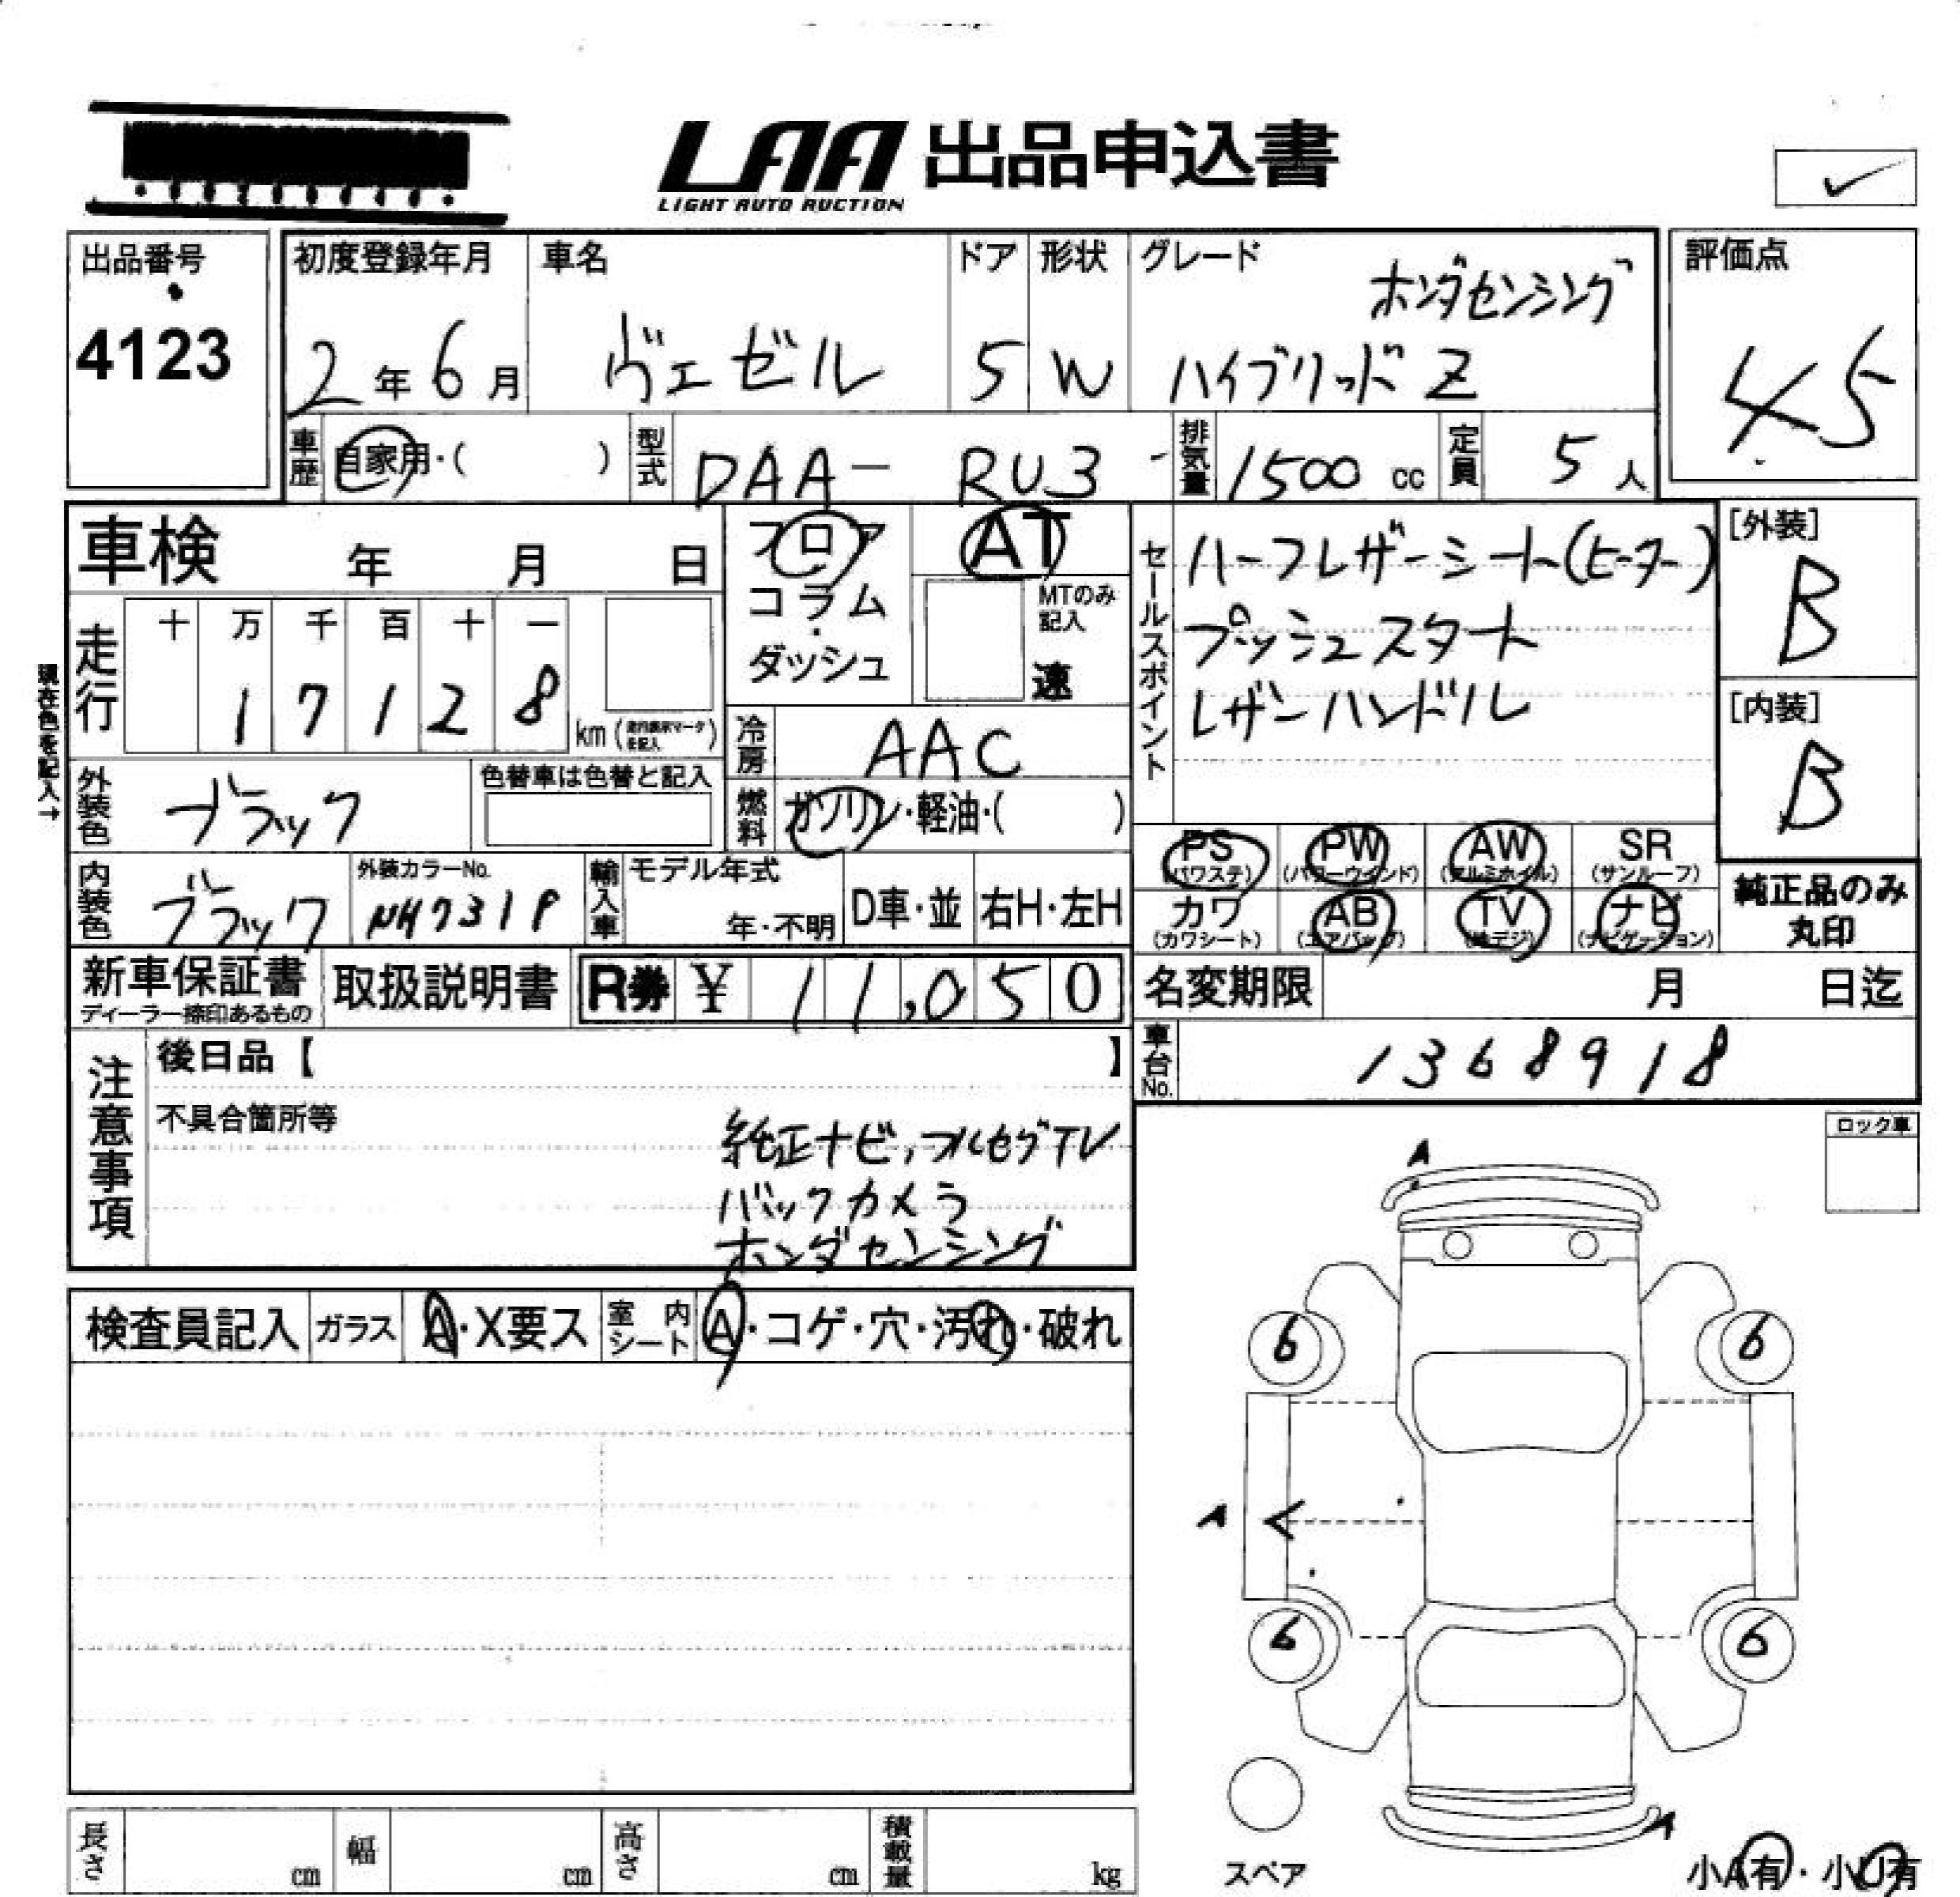 LAA 出品申込書
LIGHT AUTO AUCTION
出品番号
4123
初度登録年月
2年6月
車名
ヴェゼル
ドア
5
形状
W
グレード
ホンダセンシング
ハイブリッド Z
評価点
4.5
車歴
自家用・( )
型式
DAA- RU3
排気量
1500 cc
定員
5 人
車検 年 月 日
フロア
コラム
・
ダッシュ
AT
MTのみ
記入
速
セールスポイント
ハーフレザーシート(ヒーター)
プッシュスタート
レザーハンドル
[外装]
B
[内装]
B
現在色を記入→
走行
十 万 千 百 十 一
1 7 1 2 8
km
冷房
AAC
外装色
ブラック
色替車は色替と記入
燃料
ガソリン・軽油・( )
PS
(パワステ)
PW
(パワーウインド)
AW
(アルミホイル)
SR
(サンルーフ)
カワ
(カワシート)
AB
(エアバッグ)
TV
(地デジ)
ナビ
(ナビゲーション)
純正品のみ
丸印
内装色
ブラック
外装カラーNo.
NH731P
輸入車
モデル年式
年・不明
D車・並
右H・左H
新車保証書
ディーラー捺印あるもの
取扱説明書
R券 ¥ 11,050
名変期限 月 日迄
車台No.
1368918
注意事項
後日品【 】
不具合箇所等
純正ナビ,フルセグTV
バックカメラ
ホンダセンシング
ロック車
検査員記入
ガラス
A・X要ス
室内シート
A・コゲ・穴・汚れ・破れ
A
6 6
A
6 6
A
スペア
小A有・小U有
長さ cm
幅 cm
高さ cm
積載量 kg